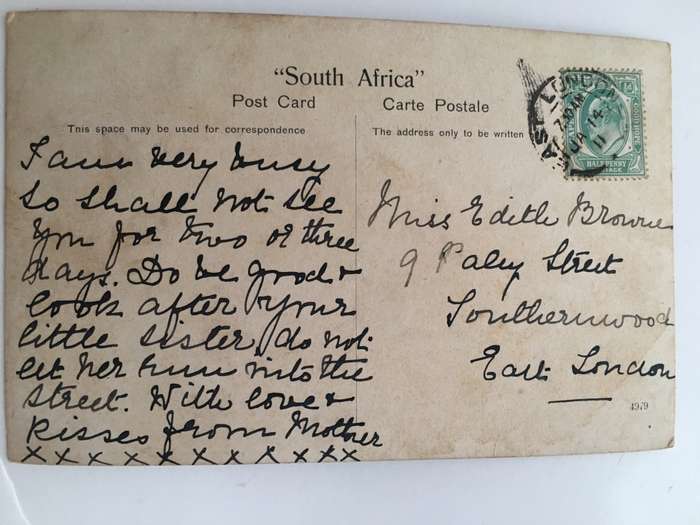 "South Africa"
Post Card
Carte Postale
This space may be used for correspondence
The address only to be written
I am very busy
so shall not see
you for two or three
days. Do be good &
look after your
little sister, do not
let her run into the
street. With love &
kisses from Mother
x x x x x x x x x x x x x
Miss Edith Browne
9 Paley Street
Southernwood
East London
4979
EAST LONDON
JA 14
11
HALF PENNY